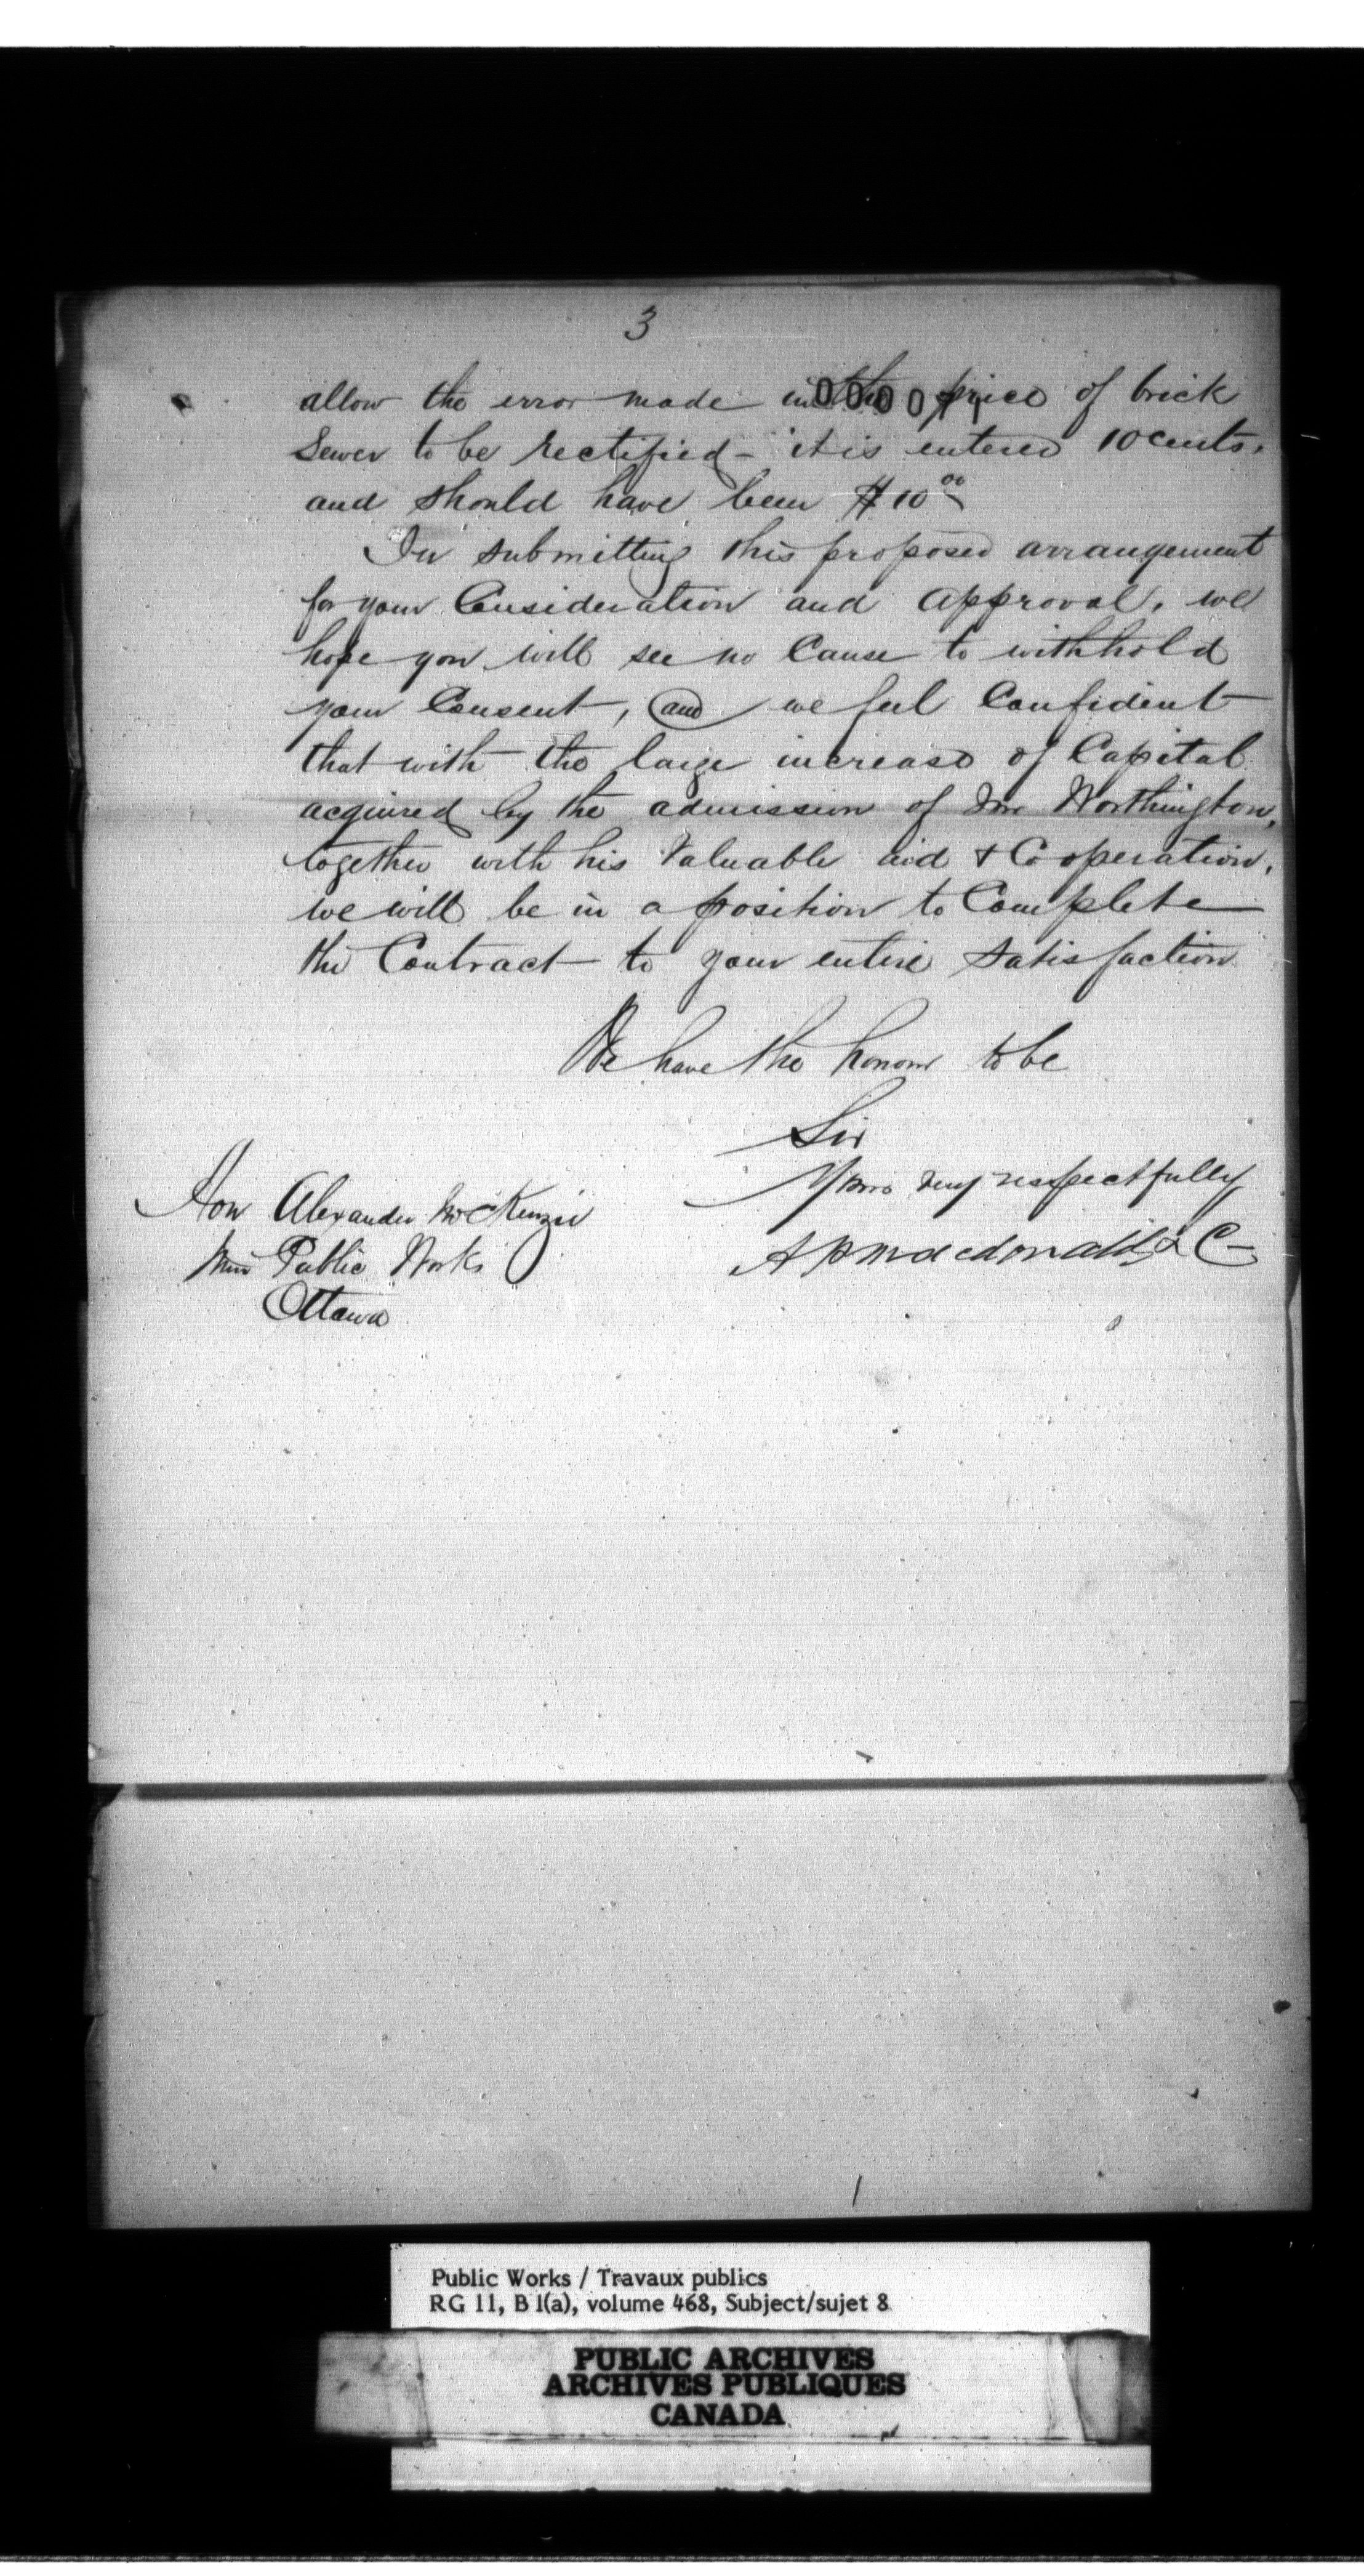 3
allow the error made in the price of brick
0000
Sewer to be rectified - it is entered 10 cents.
and should have been $10 00
In submitting this proposed arrangement
for your Consideration and approval, we
hope you will see no Cause to withhold
your Consent, and we feel Confident
that with the large increase of Capital
acquired by the admission of Mr Worthington,
together with his Valuable aid & Cooperation,
we will be in a position to Complete
the Contract to your entire satisfaction
We have the honour to be
Sir
Yours very respectfully
A P Macdonald & C
Hon Alexander McKenzie
Min Public Works
Ottawa
Public Works / Travaux publics
RG 11, B 1(a), volume 468, Subject/sujet 8
PUBLIC ARCHIVES
ARCHIVES PUBLIQUES
CANADA